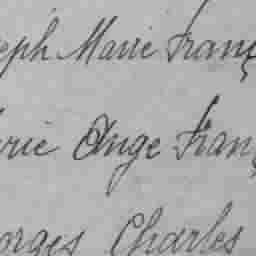 eph Marie Franç
rie Ange Franç
orges Charles